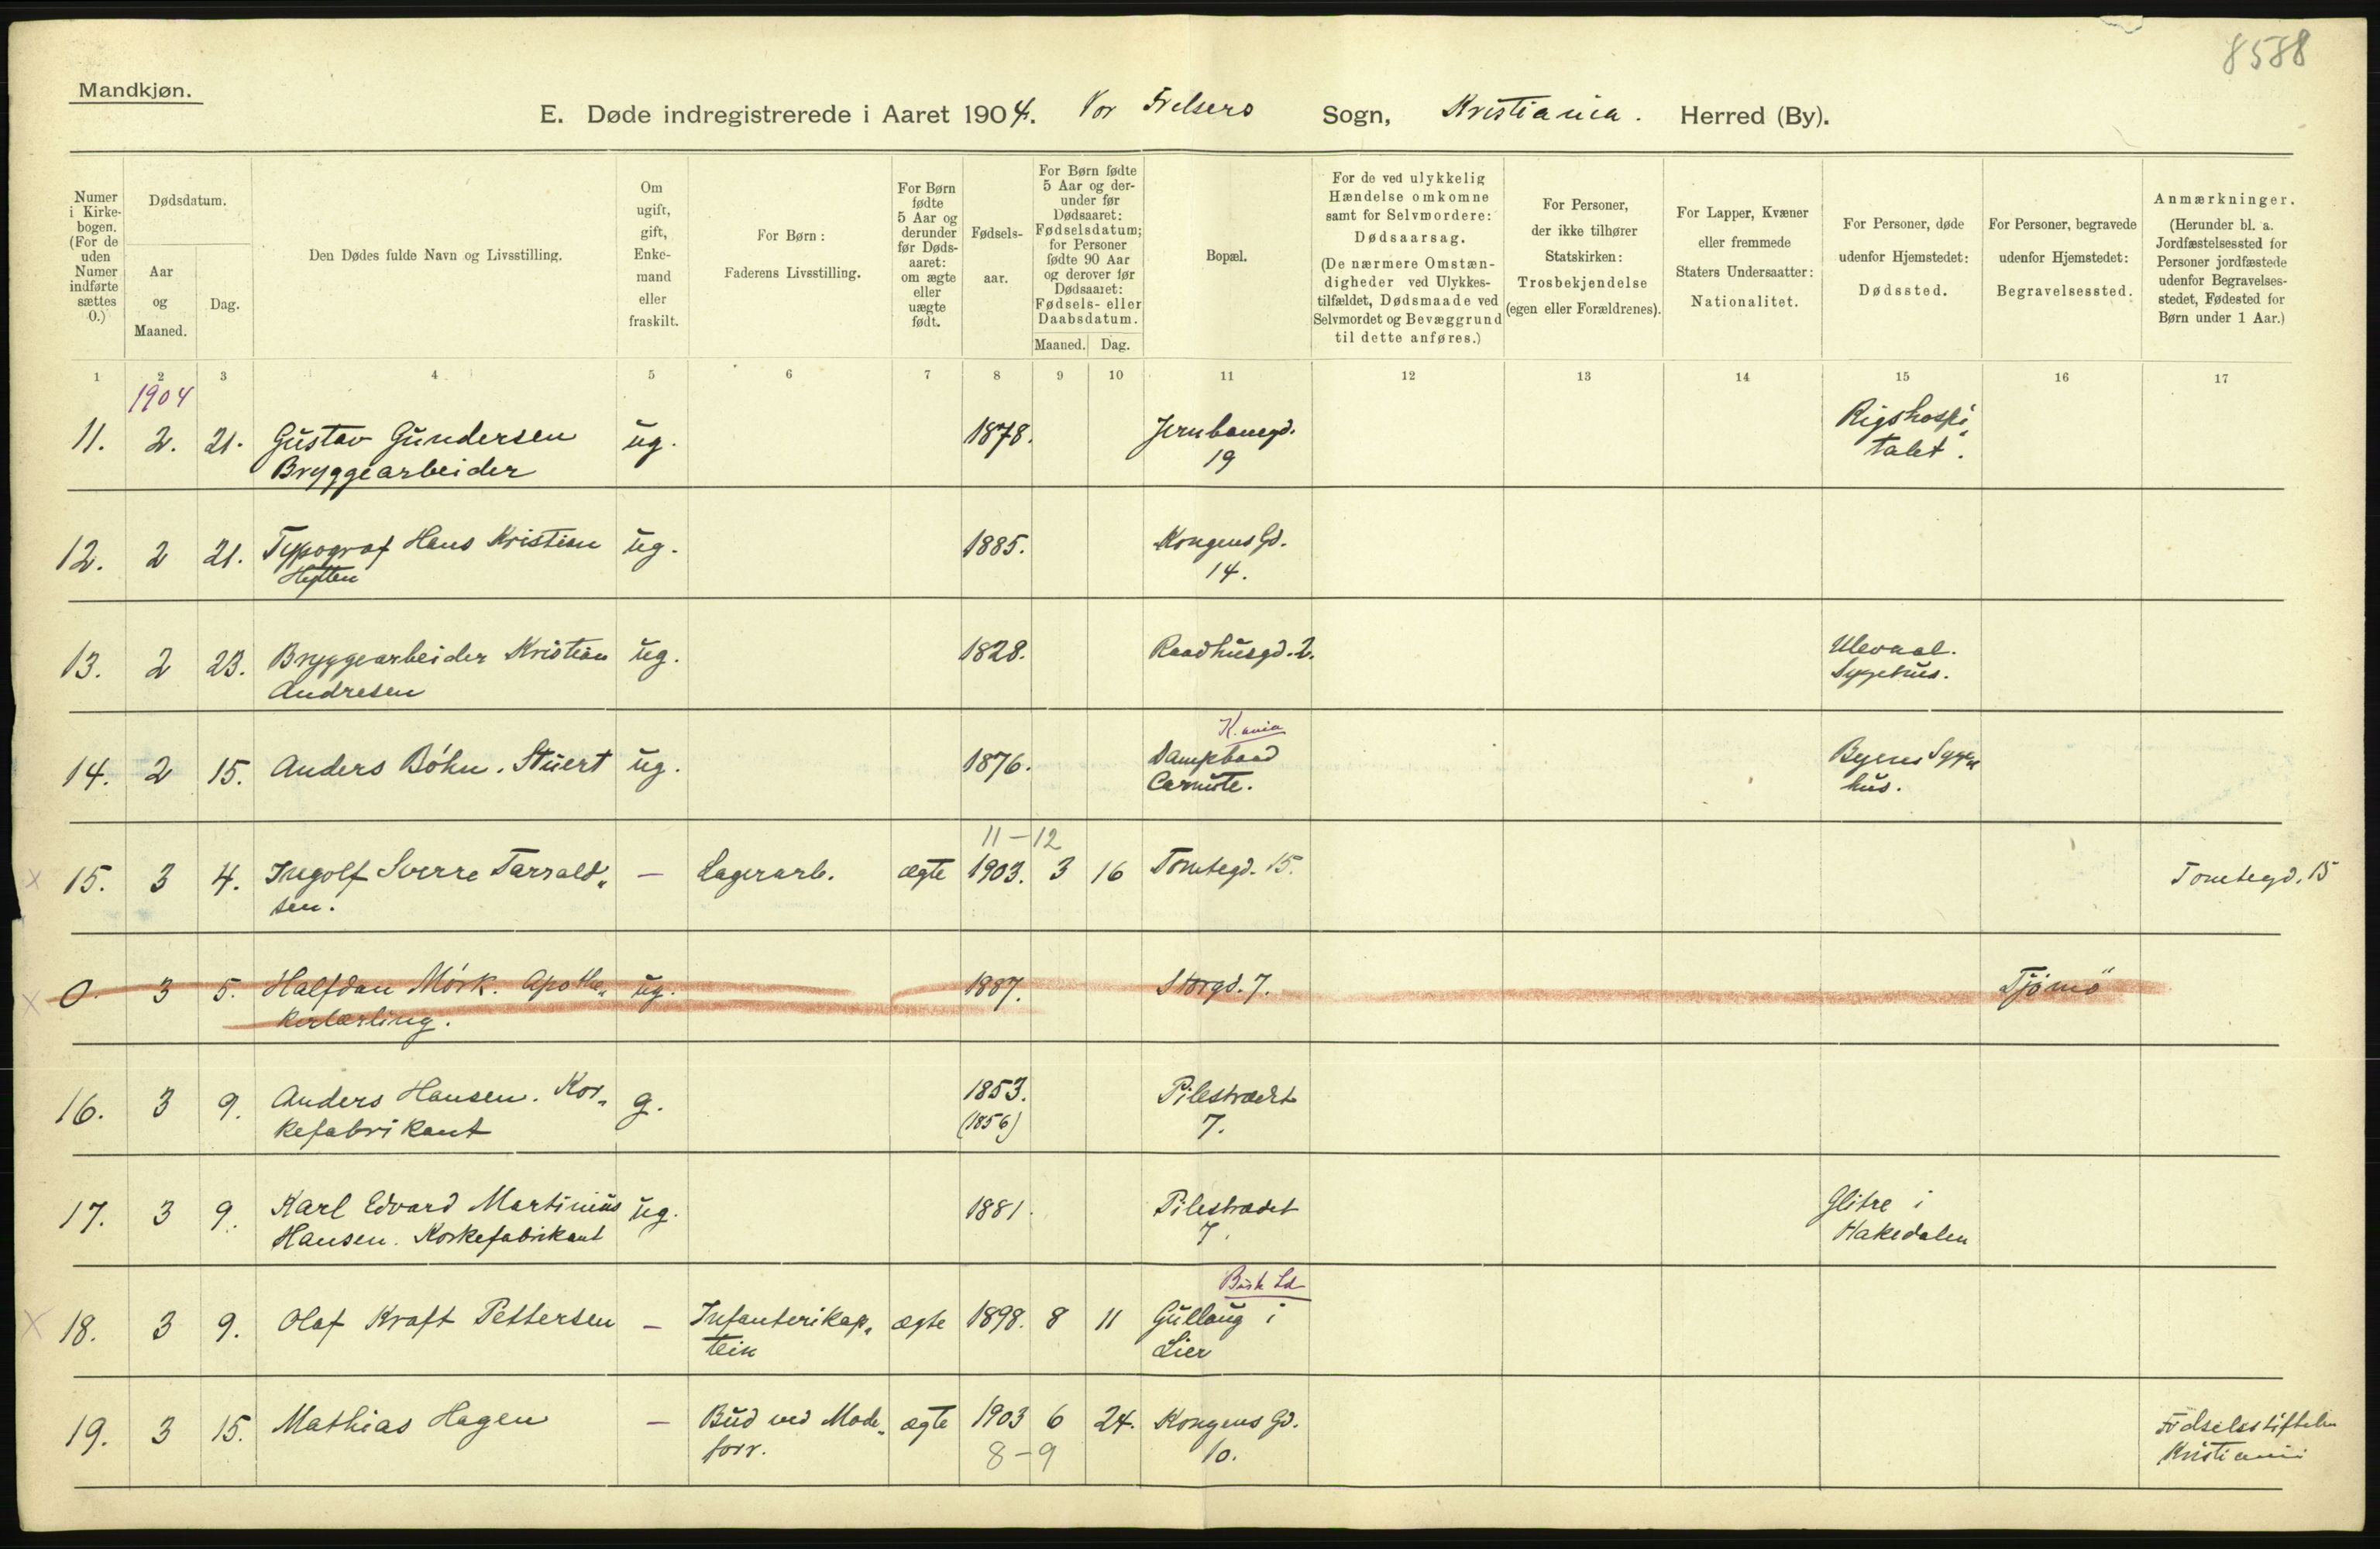 8588
Mandkjøn.
E. Døde indregistrerede i Aaret 1904. Vor Frelsers Sogn, Kristiania. Herred (By).
Numer i Kirkebogen. (For de uden Numer indførte sættes 0.)
Dødsdatum.
Aar og Maaned.
Dag.
Den Dødes fulde Navn og Livsstilling.
Om ugift, gift, Enkemand eller fraskilt.
For Børn: Faderens Livsstilling.
For Børn fødte 5 Aar og derunder før Dødsaaret: om ægte eller uægte født.
Fødselsaar.
For Børn fødte 5 Aar og derunder før Dødsaaret: Fødselsdatum; for Personer fødte 90 Aar og derover før Dødsaaret: Fødsels- eller Daabsdatum.
Maaned. Dag.
Bopæl.
For de ved ulykkelig Hændelse omkomne samt for Selvmordere: Dødsaarsag. (De nærmere Omstændigheder ved Ulykkestilfældet, Dødsmaade ved Selvmordet og Bevæggrund til dette anføres.)
For Personer, der ikke tilhører Statskirken: Trosbekjendelse (egen eller Forældrenes).
For Lapper, Kvæner eller fremmede Staters Undersaatter: Nationalitet.
For Personer, døde udenfor Hjemstedet: Dødssted.
For Personer, begravede udenfor Hjemstedet: Begravelsessted.
Anmærkninger. (Herunder bl. a. Jordfæstelsessted for Personer jordfæstede udenfor Begravelsesstedet, Fødested for Børn under 1 Aar.)
1 2 3 4 5 6 7 8 9 10 11 12 13 14 15 16 17
1904
11. 2. 21. Gustav Gundersen ug. 1878. Jernbanegd. Rigshospi
Bryggearbeider 19 talet.
12. 2 21. Typograf Hans Kristian ug. 1885. Kongens Gd.
14.
13. 2 23. Bryggearbeider Kristian ug. 1828. Raadhusgd. 2. Ulevaal.
Andresen Sygehus.
K.ania
14. 2 15. Anders Böhn. Stuert ug. 1876. Dampbaad Byens Syge
Carmute. hus.
11-12
x 15. 3 4. Ingolf Sverre Tarrald„ — Lagerarb. ægte 1903. 3 16 Tomtegd. 15. Tomtegd. 15
sen.
x 0. 3 5. Halfdan Mörk. Apothe„ ug. 1887. Storgd. 7. Tjömö
kerlærling.
16. 3 9. Anders Hansen. Kor„ g. 1853. Pilestrædet
kefabrikant (1856) 7.
17. 3 9. Karl Edvard Martinius ug. 1881. Pilestrædet Glitre i
Hansen. Korkefabrikant 7. Hakedalen
Busk Ld
x 18. 3 9. Olaf Kraft Pettersen — Infanterikap„ ægte 1898. 8 11 Gullaug i
tein Lier
19. 3 15. Mathias Hagen — Bud ved Mode„ ægte 1903 6 24. Kongens Gd. Födselsstiftelsen
forr. 8-9 10. Kristiania